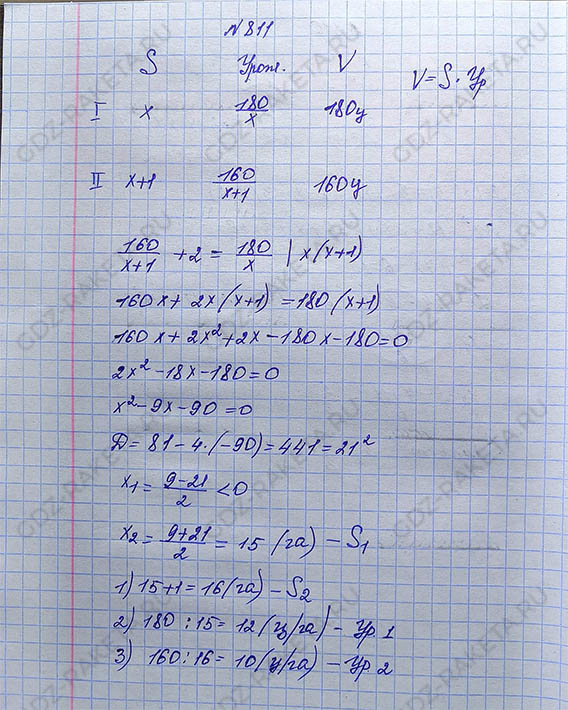 № 811
S Урож. V V=S·Ур
I x 180/x 180ц
II x+1 160/(x+1) 160ц
160/(x+1) +2 = 180/x | x(x+1)
160x + 2x(x+1) = 180(x+1)
160x + 2x² + 2x - 180x - 180 = 0
2x² - 18x - 180 = 0
x² - 9x - 90 = 0
D = 81 - 4·(-90) = 441 = 21²
x₁ = (9-21)/2 < 0
x₂ = (9+21)/2 = 15 (га) - S₁
1) 15+1 = 16 (га) - S₂
2) 180 : 15 = 12 (ц/га) - Ур 1
3) 160 : 16 = 10 (ц/га) - Ур 2
GDZ-RAKETA.RU